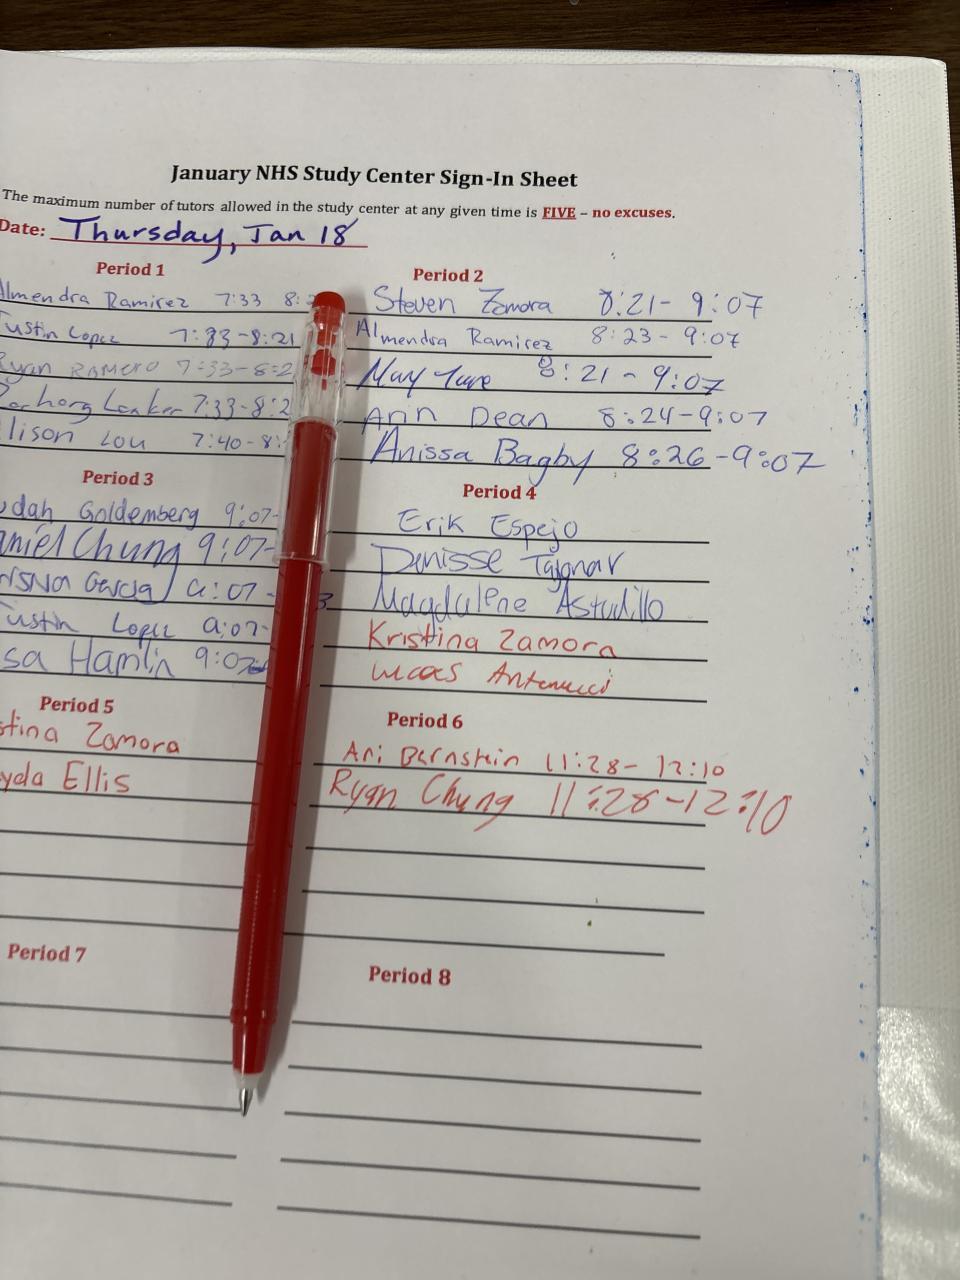 January NHS Study Center Sign-In Sheet
The maximum number of tutors allowed in the study center at any given time is FIVE – no excuses.
Date: Thursday, Jan 18
Period 1
Almendra Ramirez 7:33 8:
Justin Lopez 7:33-8:21
Ryan Romero 7:33-8:2
7:33-8:2
lison Lou 7:40-8:
Period 2
Steven Zamora 8:21- 9:07
Almendra Ramirez 8:23- 9:07
May 8:21-9:07
Arin Dean 8:24-9:07
Anissa Bagby 8:26-9:07
Period 3
udah Goldemberg 9:07-
aniel Chung 9:07-
Garcia 9:07-
Justin Lopez 9:07-
sa Hamlin 9:07
Period 4
Erik Espejo
Denisse
Magdalene Astudillo
Kristina Zamora
Lucas Antenucci
Period 5
stina Zamora
yela Ellis
Period 6
Ari Bernstein 11:28- 12:10
Ryan Chung 11:28-12:10
Period 7
Period 8